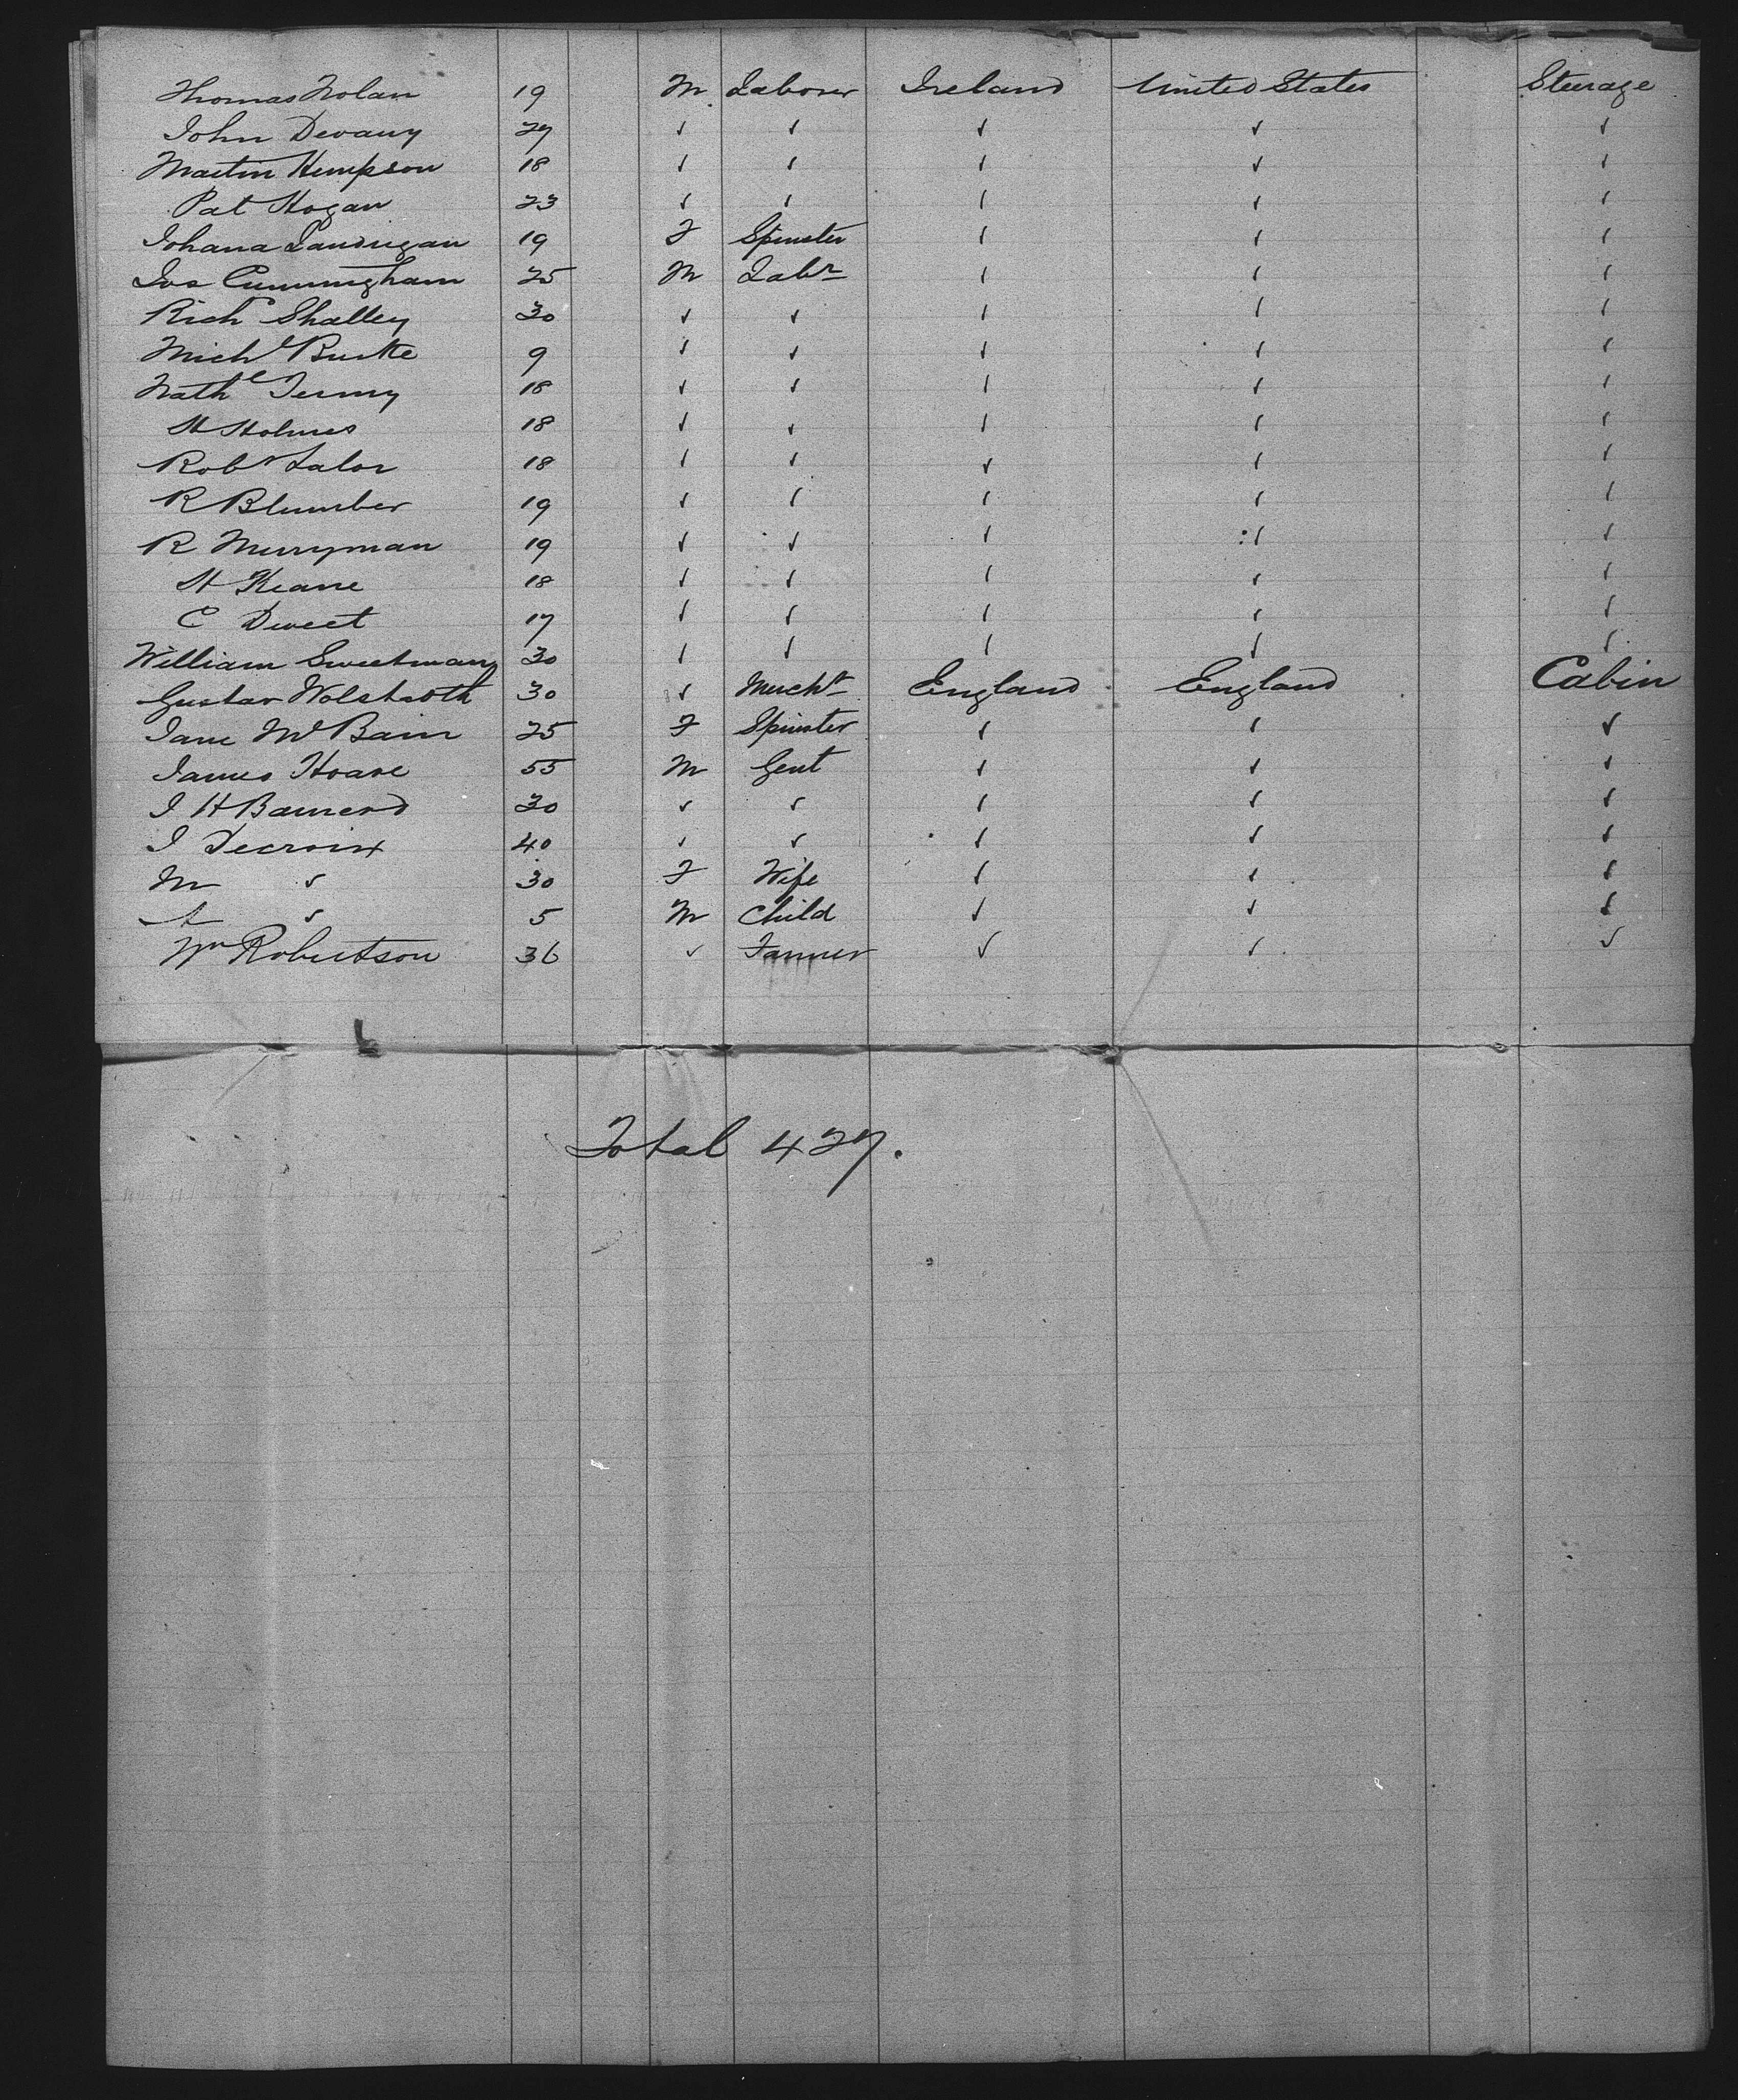 Thomas Nolan 19 M Laborer Ireland United States Steerage
John Devany 27 ✓ ✓ ✓ ✓ ✓
Martin Hempson 18 ✓ ✓ ✓ ✓ ✓
Pat Hogan 23 ✓ ✓ ✓ ✓ ✓
Johana Landrigan 19 F Spinster ✓ ✓ ✓
Jos Cunningham 25 M Labr ✓ ✓ ✓
Richd Shalley 30 ✓ ✓ ✓ ✓ ✓
Michl Burke 9 ✓ ✓ ✓ ✓ ✓
Nathl 18 ✓ ✓ ✓ ✓ ✓
H Holmes 18 ✓ ✓ ✓ ✓ ✓
Robt Lalor 18 ✓ ✓ ✓ ✓ ✓
R Blumber 19 ✓ ✓ ✓ ✓ ✓
R Merryman 19 ✓ ✓ ✓ ✓ ✓
H Keane 18 ✓ ✓ ✓ ✓ ✓
C Dweet 17 ✓ ✓ ✓ ✓ ✓
William Sweetman 30 ✓ ✓ ✓ ✓ ✓
Gustav 30 ✓ Mercht England England Cabin
Jane Mc Bain 25 F Spinster ✓ ✓ ✓
James Hoare 55 M Gent ✓ ✓ ✓
J H 30 ✓ ✓ ✓ ✓ ✓
J Decroix 40 ✓ ✓ ✓ ✓ ✓
M ✓ 30 F Wife ✓ ✓ ✓
A ✓ 5 M Child ✓ ✓ ✓
Wm Robertson 36 ✓ Farmer ✓ ✓ ✓
Total 427.